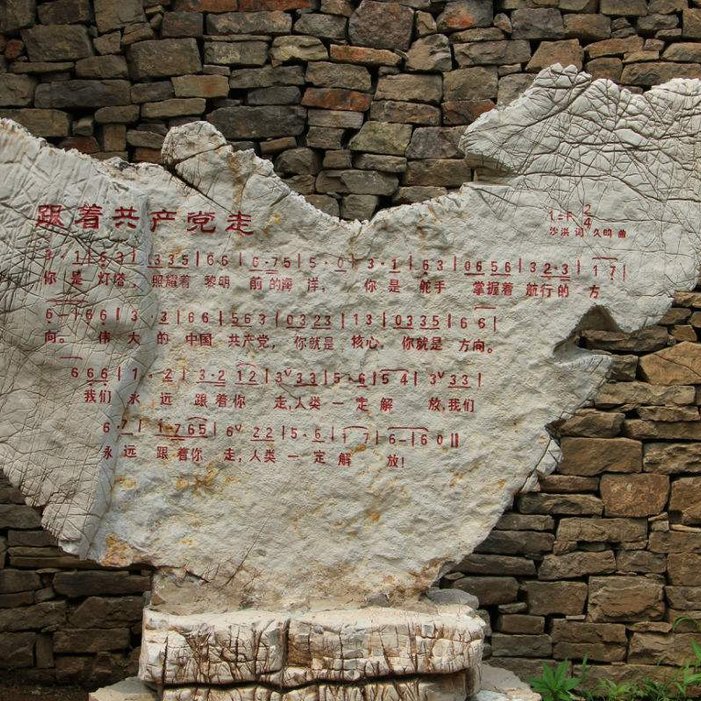 跟着共产党走
1=F 2/4
沙洪 词 久鸣 曲
3·1|6 3|3 3 5|6 6|6·7 5|5·0|3·1|6 3|0 6 5 6|3 2·3|1 7|
你是灯塔, 照耀着 黎明 前的海洋, 你是 舵手 掌握着 航行的方
6—|6 6|3·3|6 6|5 6 3|0 3 2 3|1 3|0 3 3 5|6 6|
向。 伟大的 中国 共产党, 你就是 核心, 你就是 方向。
6 6 6|1·2|3·2 1 2|3 3 3|5·6|5 4|3 3 3|
我们 永远 跟着你 走,人类一定解 放,我们
6·7|1·7 6 5|6 2 2|5·6|1 7|6—|6 0‖
永远 跟着你 走,人类一定解 放!